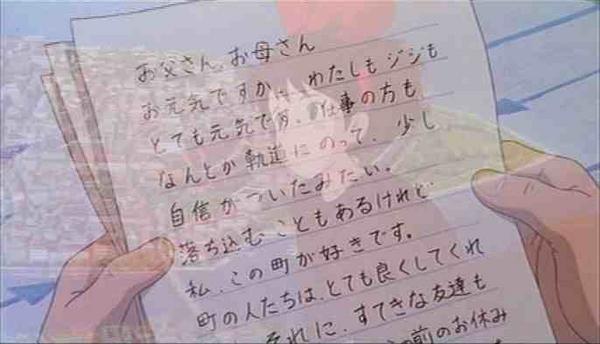 お父さん、お母さん
お元気ですか、わたしもジジも
とても元気です。仕事の方も
なんとか軌道にのって、少し
自信がついたみたい。
落ち込むこともあるけれど
私、この町が好きです。
町の人たちは、とても良くしてくれ
それに、すてきな友達も
前のお休み